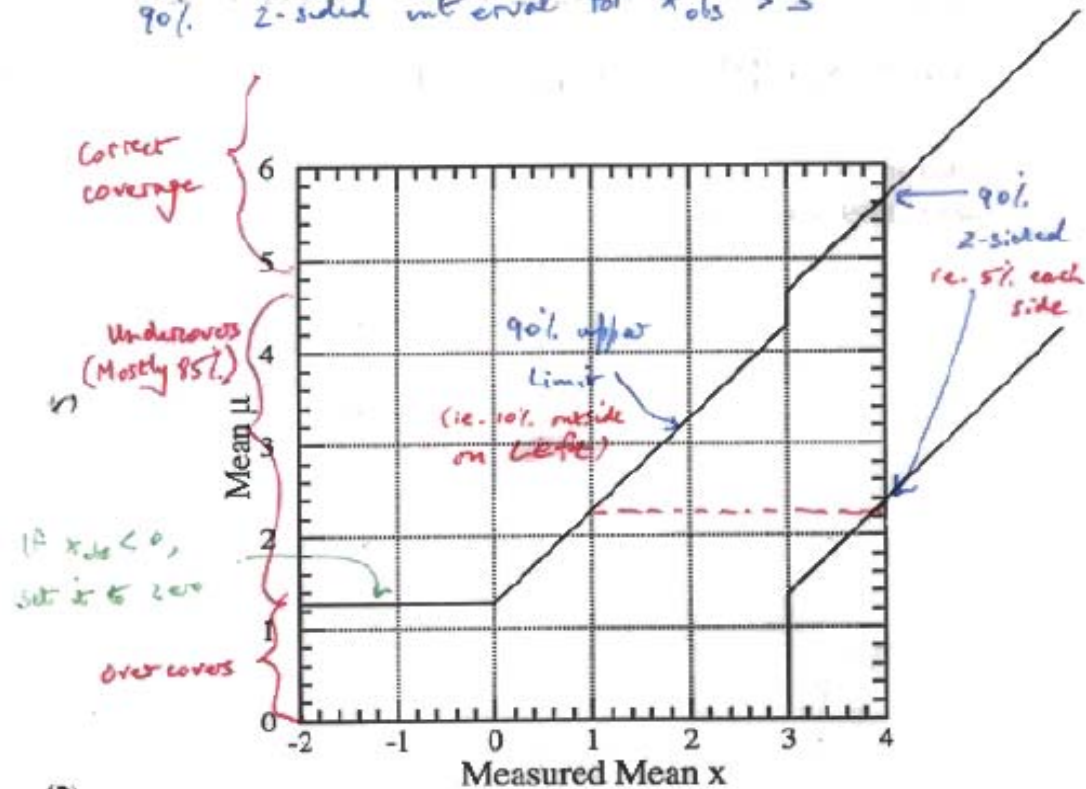 90% 2-sided interval for x obs > 3
Correct
coverage
Undercovers
(Mostly 85%)
If x obs < 0,
set it to zero
over covers
90% upper
Limit
(ie. 10% outside
on Left)
90%
2-sided
ie. 5% each
side
6
5
4
3
2
1
0
Mean μ
-2 -1 0 1 2 3 4
Measured Mean x